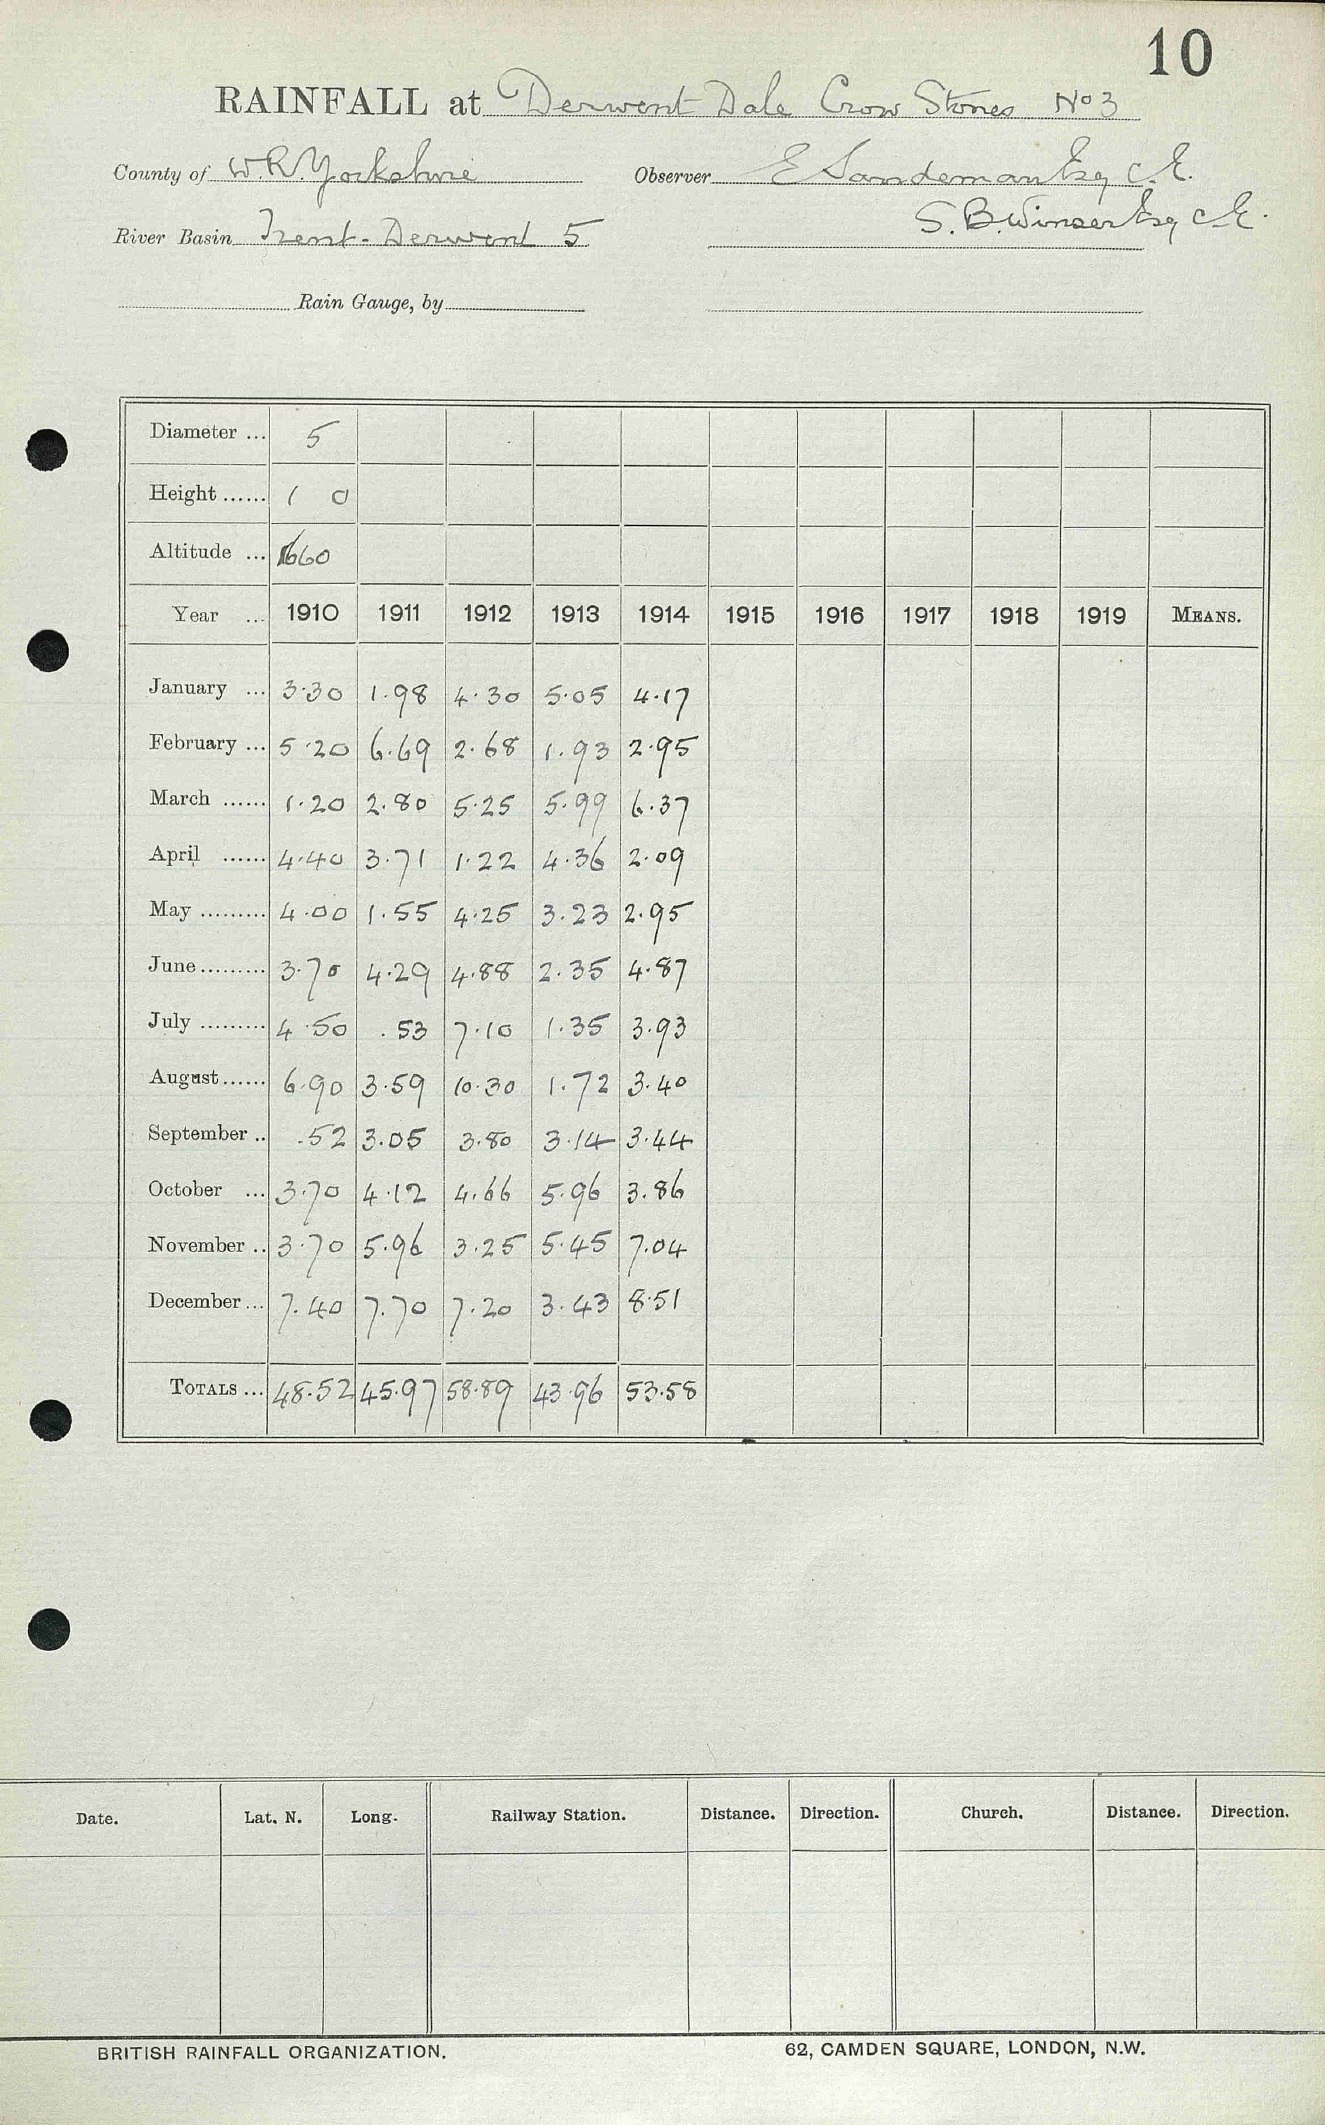 10
RAINFALL at Derwent Dale Crow Stones No 3
County of W.R. Yorkshire Observer E Sandeman Esq C.E.
River Basin Trent-Derwent 5 S.B. Winser Esq C.E.
Rain Gauge, by
Diameter ... 5
Height ...... 1 0
Altitude ... 1660
Year ... 1910 1911 1912 1913 1914 1915 1916 1917 1918 1919 MEANS.
January ... 3.30 1.98 4.30 5.05 4.17
February ... 5.20 6.69 2.68 1.93 2.95
March ...... 1.20 2.80 5.25 5.99 6.37
April ...... 4.40 3.71 1.22 4.36 2.09
May ......... 4.00 1.55 4.25 3.23 2.95
June ......... 3.70 4.29 4.88 2.35 4.87
July ......... 4.50 .53 7.10 1.35 3.93
August ...... 6.90 3.59 10.30 1.72 3.40
September .. .52 3.05 3.80 3.14 3.44
October ... 3.70 4.12 4.66 5.96 3.86
November .. 3.70 5.96 3.25 5.45 7.04
December ... 7.40 7.70 7.20 3.43 8.51
TOTALS ... 48.52 45.97 58.89 43.96 53.58
Date. Lat. N. Long. Railway Station. Distance. Direction. Church. Distance. Direction.
BRITISH RAINFALL ORGANIZATION. 62, CAMDEN SQUARE, LONDON, N.W.